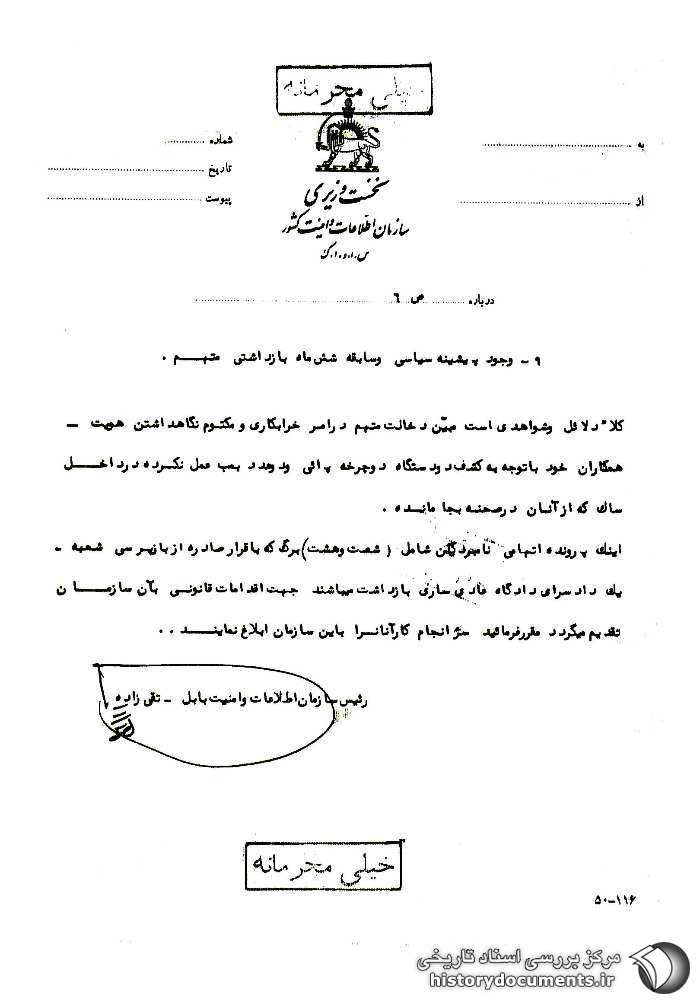 خیلی محرمانه
به
شماره
تاریخ
از
پیوست
نخست وزیری
سازمان اطلاعات و امنیت کشور
س.ا.و.ا.ک
درباره ص ٦
۹- وجود پیشینه سیاسی وسابقه شش ماه بازداشتی متهم .
کلا" دلائل وشواهدی است مبیّن دخالت متهم درامر خرابکاری و مکتوم نگاهداشتن هویت -
همکاران خود باتوجه به کشف دودستگاه دوچرخه پائی ودوعدد بمب عمل نکرده درداخل
ساک که ازآنان درصحنه بجا مانده .
اینک پرونده اتهامی نامبردگان شامل (شصت وهشت) برگ که باقرار صادره از بازپرسی شعبه -
یک دادسرای دادگاه عادی ساری بازداشت میباشند جهت اقدامات قانونی بآن سازمان
تقدیم میگردد مقررفرمائید سرانجام کارآنانرا باین سازمان ابلاغ نمایند ..
رئیس سازمان اطلاعات وامنیت بابل - تقی زاده
خیلی محرمانه
۵۰-۱۱۶
مرکز بررسی اسناد تاریخی
historydocuments.ir